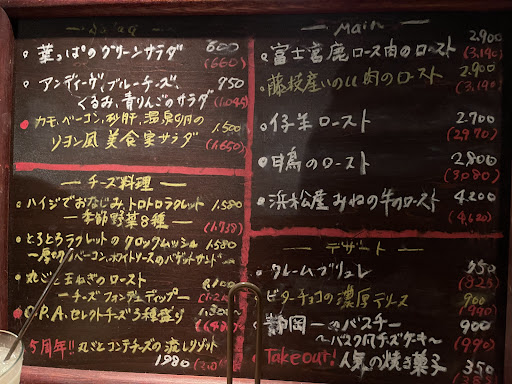 葉っぱのグリーンサラダ 600
(660)
アンディーヴ、ブルーチーズ、 950
くるみ、青りんごのサラダ (1,045)
カモ、ベーコン、砂肝、温泉卵の 1,500
リヨン風 美食家サラダ (1,650)
チーズ料理
ハイジでおなじみ、トロトロラクレット 1,580
季節野菜8種 (1,738)
とろとろラクレットの クロックムッシュ 1,580
厚切りベーコン、ホワイトソースのバゲットサンド
丸ごと玉ねぎのロースト
チーズフォンデュディップ
O.P.A.セレクトチーズ3種盛り
5周年!! 丸ごとコンテチーズの流しリゾット
1980
Main
富士宮鹿ロース肉のロースト 2,900
(3,190)
藤枝産いのしし肉のロースト 2,900
(3,190)
仔羊ロースト 2,700
(2970)
ロースト 2,800
(3080)
浜松屋 みねの牛のロースト 4,200
(4,620)
デザート
クレームブリュレ 750
(825)
ビターチョコの濃厚テリーヌ 900
(990)
静岡一のバスチー 900
〜バスク風チーズケーキ〜 (990)
Takeout! 人気の焼き菓子 350